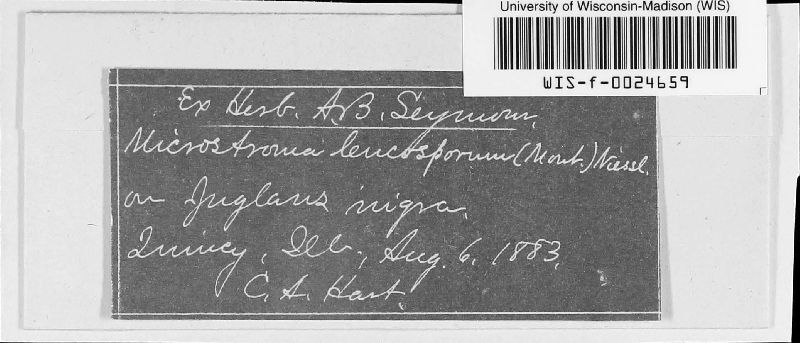 University of Wisconsin-Madison (WIS)
WIS-f-0024659
Ex Herb. A.B. Seymour.
Microstroma leucosporum (Mont.) Niessl.
on Juglans nigra.
Quincy, Ill., Aug. 6. 1883.
C. A. Hart.